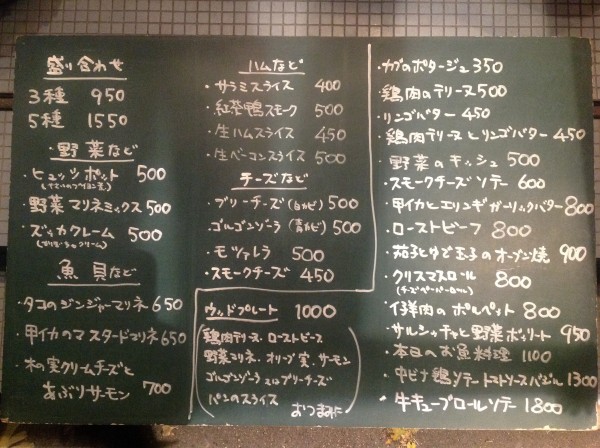 盛り合わせ
3種 950
5種 1550
・野菜など
・ヒュッツポット 500
・野菜マリネミックス 500
・ズッカクレーム 500
魚貝など
・タコのジンジャーマリネ 650
・甲イカのマスタードマリネ 650
・木の実クリームチーズと
あぶりサーモン 700
ハムなど
・サラミスライス 400
・紅茶鴨スモーク 500
・生ハムスライス 450
・生ベーコンスライス 500
チーズなど
・ブリーチーズ(白カビ) 500
・ゴルゴンゾーラ(青カビ) 500
・モツァレラ 500
・スモークチーズ 450
ウッドプレート 1000
鶏肉テリーヌ、ローストビーフ
野菜マリネ、オリーブ実、サーモン
ゴルゴンゾーラ又はブリーチーズ
パンのスライス
おつまみに
・カブのポタージュ 350
・鶏肉のテリーヌ 500
・リンゴバター 450
・鶏肉テリーヌとリンゴバター 450
・野菜のキッシュ 500
・スモークチーズソテー 600
・甲イカとエリンギガーリックバター 800
・ローストビーフ 800
・茄子とゆで玉子のオーブン焼 900
・クリスマスロール 800
・仔羊肉のポルペット 800
・サルシッチャと野菜ボッリート 950
・本日のお魚料理 1100
・中ビナ鶏ソテートマトソースバジル 1300
・牛キューブロールソテー 1800